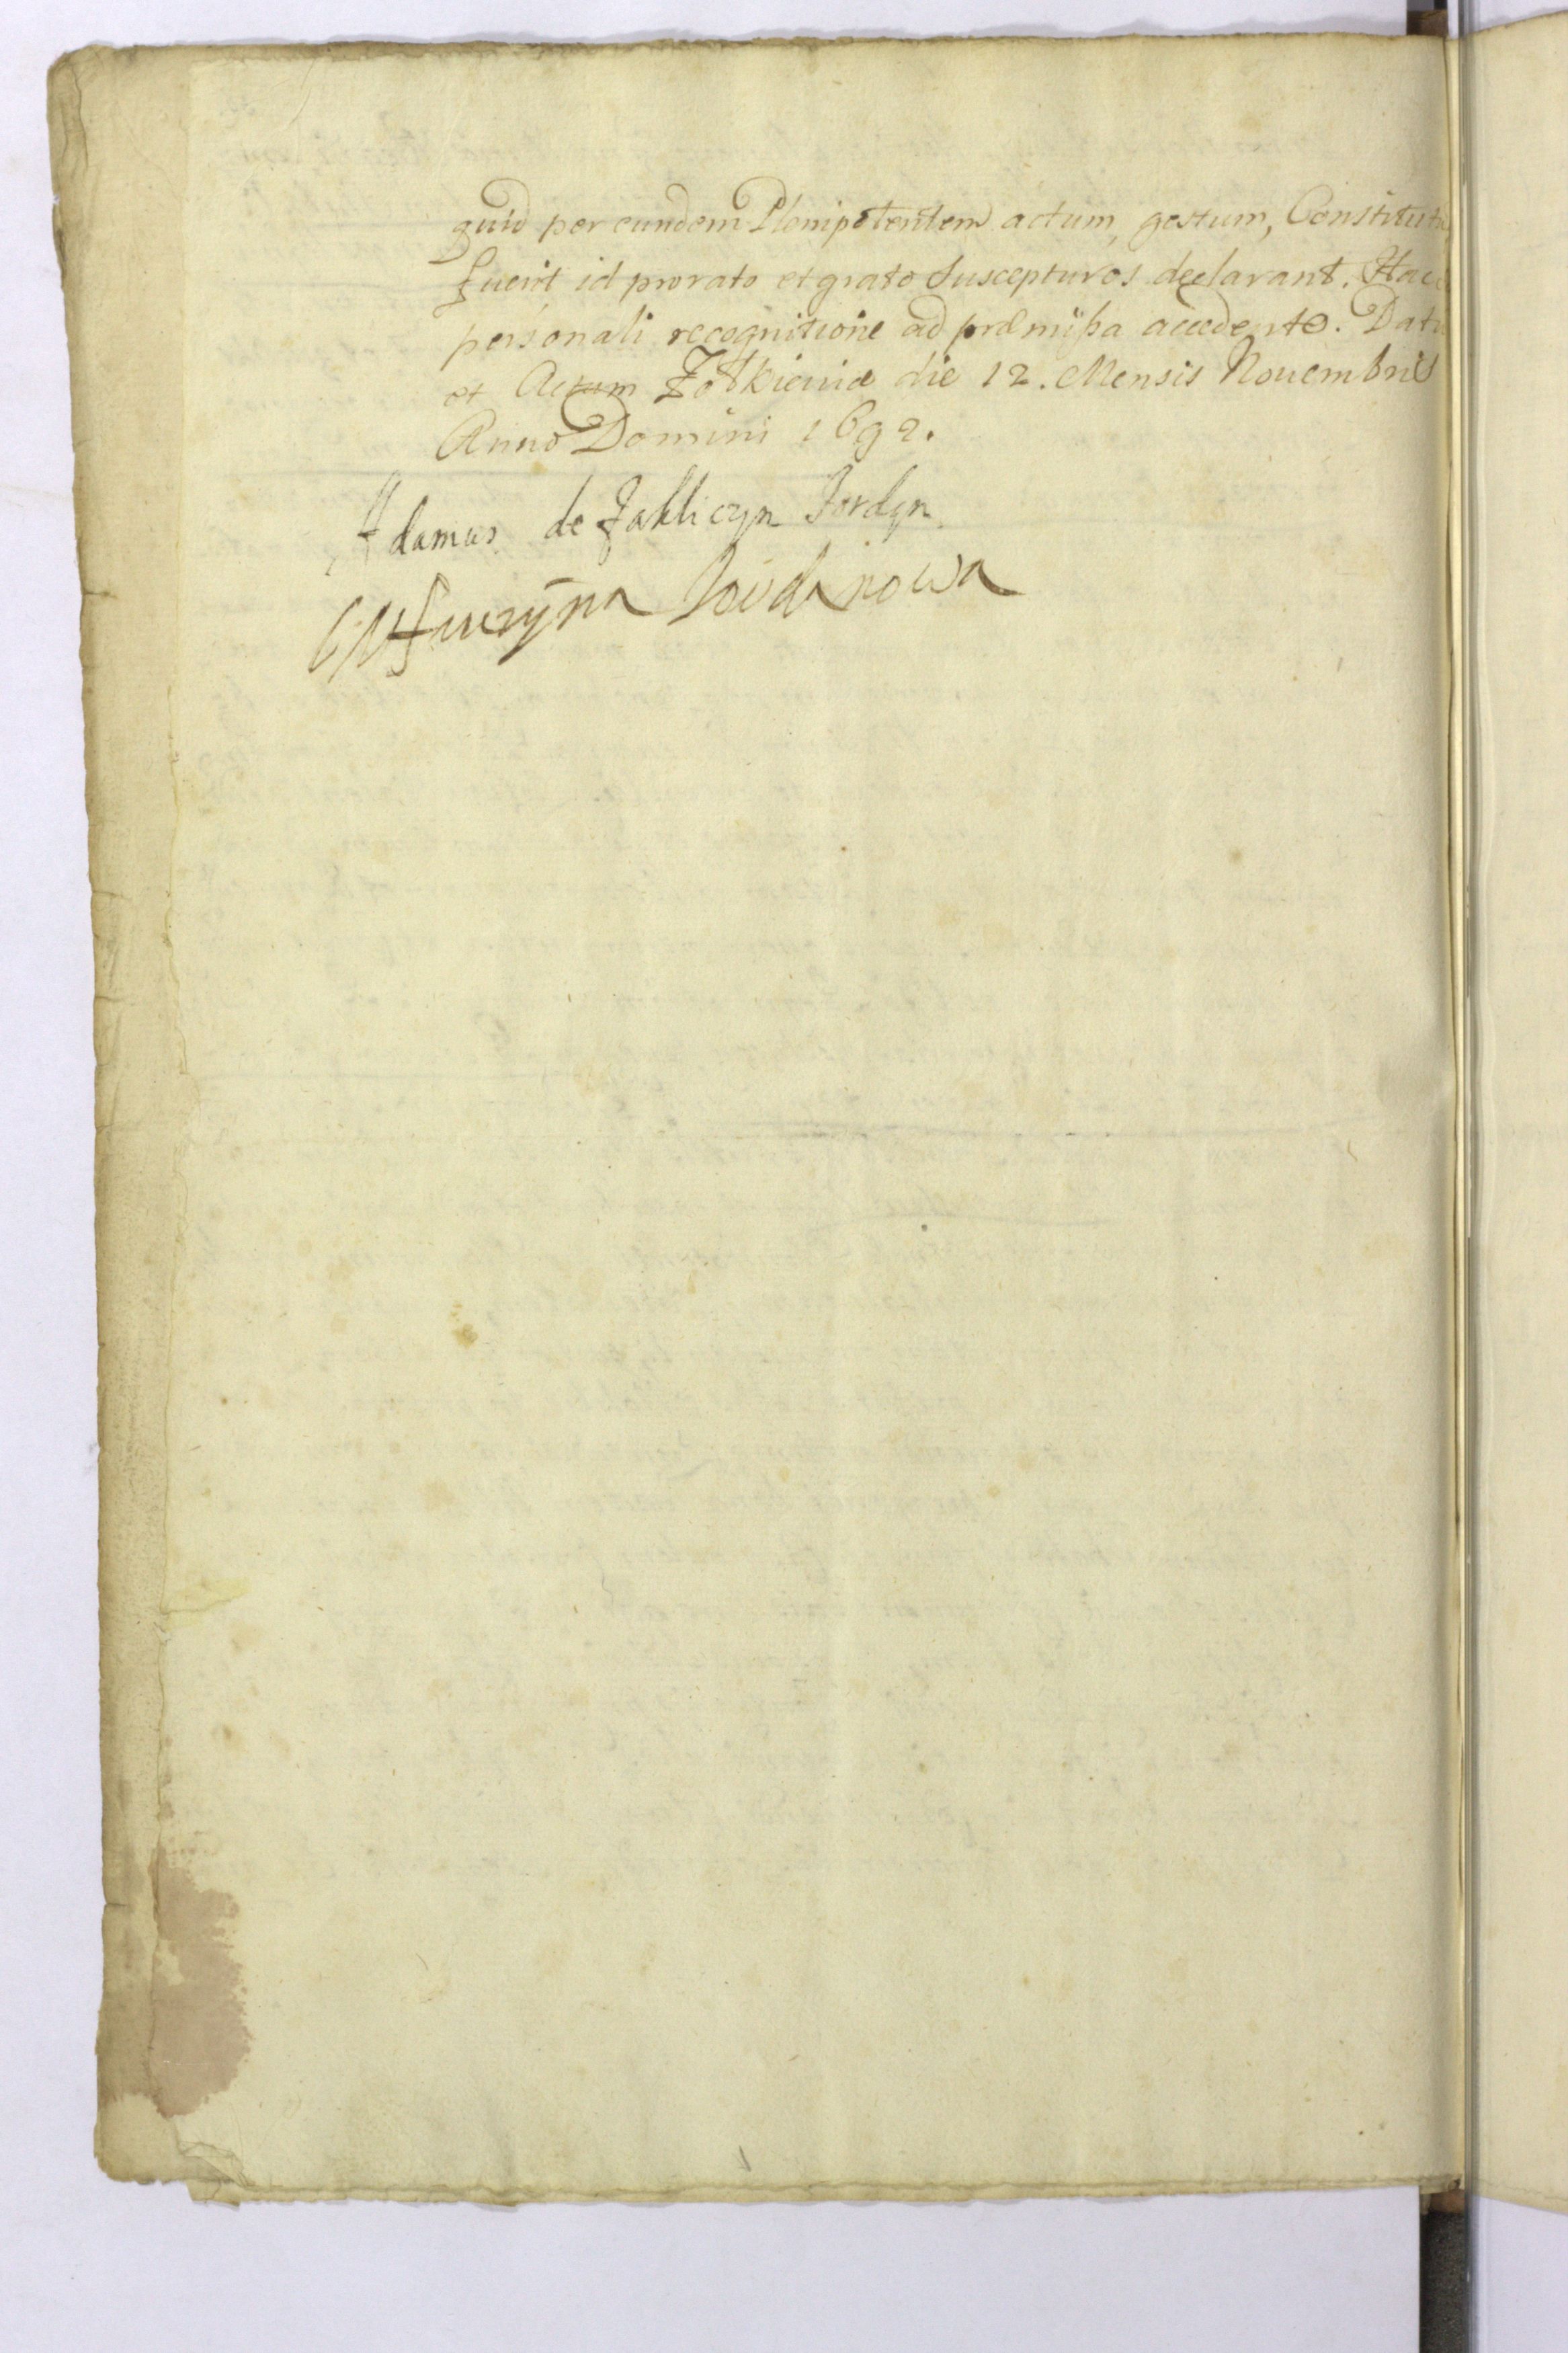 quid per eundem Plenipotentem actum, gestum, Constitutu
fuerit id prorato et grato Suscepturos declarant. Hac
personali recognitione ad præmissa accedente. Datu
et Actum Zołkieviæ die 12. Mensis Nouembris
Anno Domini 1692.
Adamus de Zakliczyn Jordan
Jordanowa